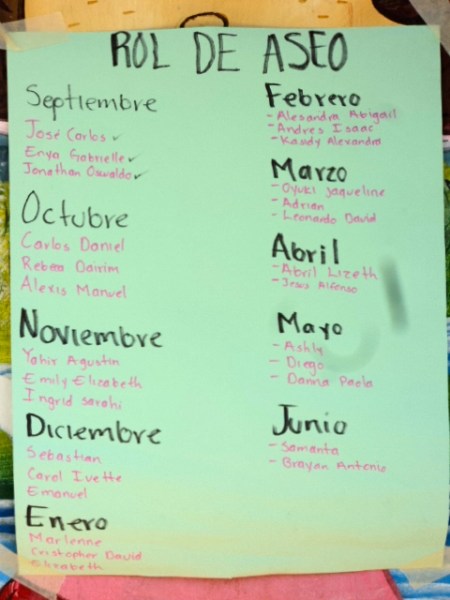 ROL DE ASEO
Septiembre
José Carlos ✓
Enya Gabrielle ✓
Jonathan Oswaldo ✓
Octubre
Carlos Daniel
Rebeca Dairim
Alexis Manuel
Noviembre
Yahir Agustin
Emily Elizabeth
Ingrid Sarahi
Diciembre
Sebastian
Carol Ivette
Emanuel
Enero
Marlenne
Cristopher David
Elizabeth
Febrero
- Alesandra Abigail
- Andres Isaac
- Kandy Alexandra
Marzo
- Oyuki Jaqueline
- Adrian
- Leonardo David
Abril
- Abril Lizeth
- Jesus Alfonso
Mayo
- Ashly
- Diego
- Danna Paola
Junio
- Samanta
- Brayan Antonio